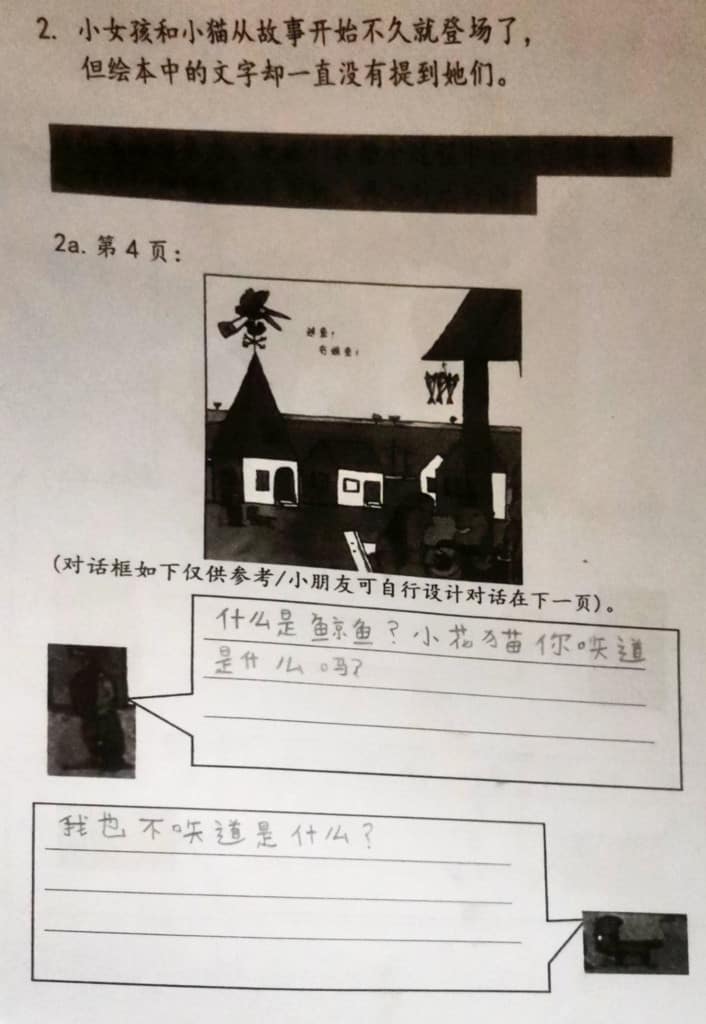 2. 小女孩和小猫从故事开始不久就登场了，
但绘本中的文字却一直没有提到她们。
2a. 第 4 页：
(对话框如下仅供参考/小朋友可自行设计对话在下一页)。
什么是鲸鱼？小花猫你知道
是什么吗？
我也不知道是什么？